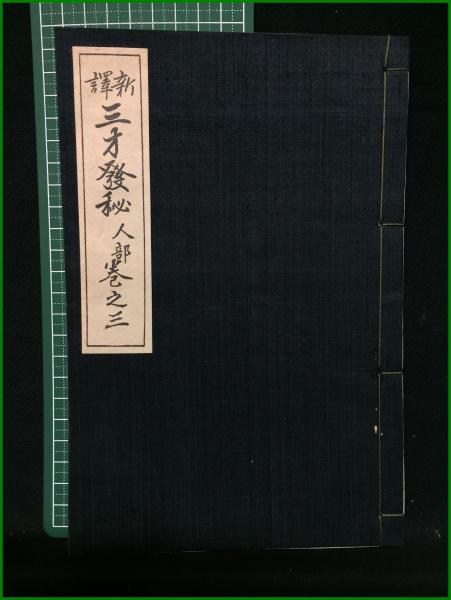 新譯
三才發秘 人部 卷之三